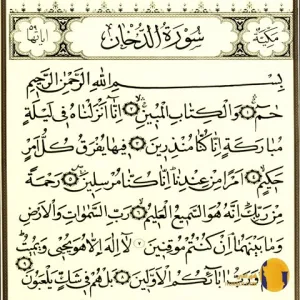 مكية سورة الدخان آياتها ٥٩
بسم الله الرحمن الرحيم
حم ۝ والكتاب المبين ۝ إنا أنزلناه في ليلة
مباركة إنا كنا منذرين ۝ فيها يفرق كل أمر
حكيم ۝ أمرا من عندنا إنا كنا مرسلين ۝ رحمة
من ربك إنه هو السميع العليم ۝ رب السماوات والأرض
وما بينهما إن كنتم موقنين ۝ لا إله إلا هو يحيي ويميت
ربكم ورب آبائكم الأولين ۝ بل هم في شك يلعبون